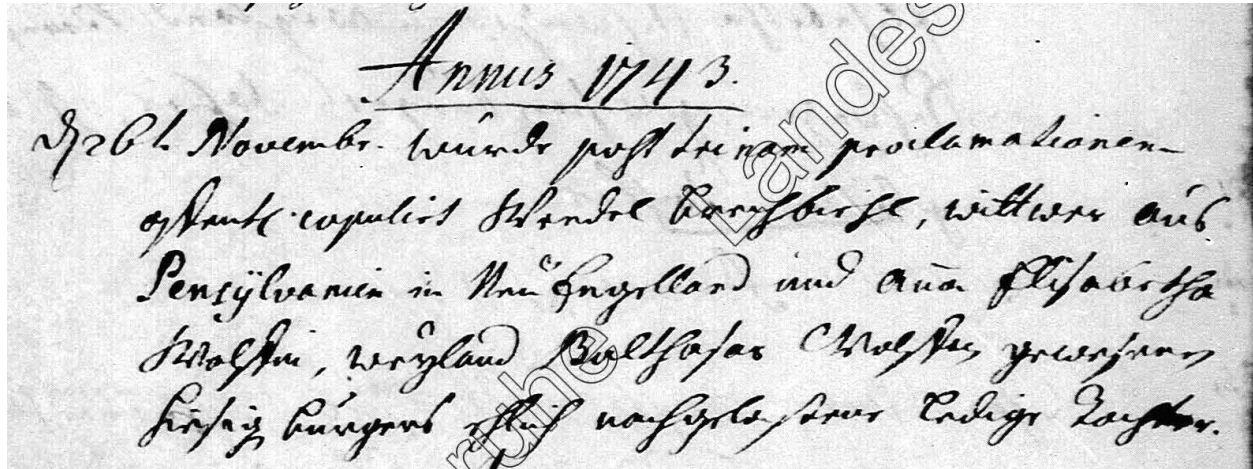 Annus 1743.
d. 26t. Novembr. wurde post trinam proclamationem
offentl. copulirt Wendel Brechbiehl, wittwer aus
Pensylvanien in Neu Engelland und Anna Elisabetha
Wolffin, weyland Balthasar Wolffen gewesenen
hiesig burgers ehlich nachgelassene ledige Tochter.
Landes
ruhe